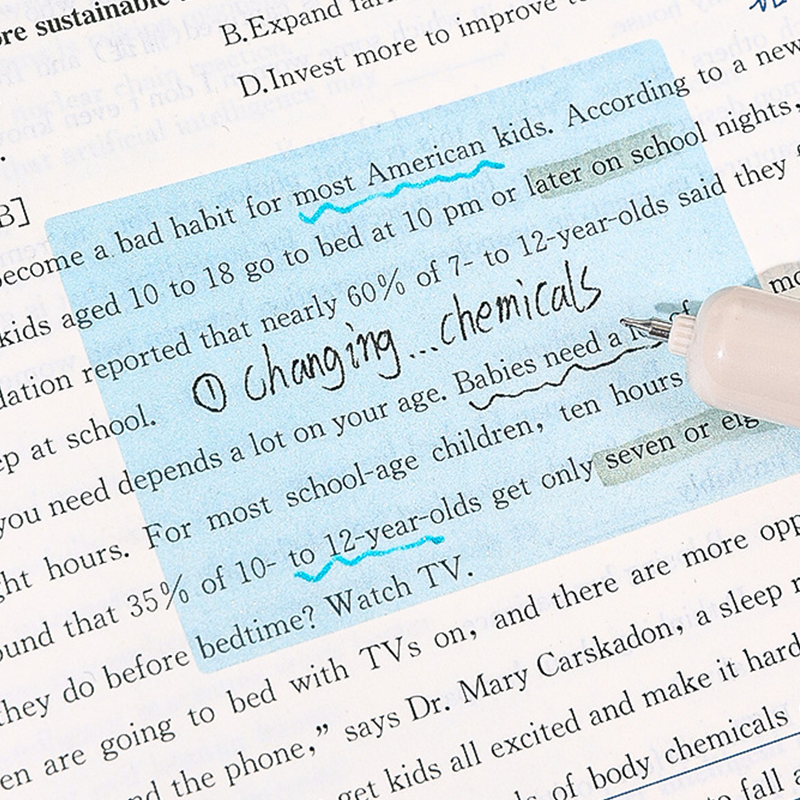 ore sustainable
B.Expand
D.Invest more to improve
B]
become a bad habit for most American kids. According to a new
kids aged 10 to 18 go to bed at 10 pm or later on school nights,
dation reported that nearly 60% of 7- to 12-year-olds said they
ep at school.
① Changing...chemicals
you need depends a lot on your age. Babies need a lot of
ght hours. For most school-age children, ten hours
ound that 35% of 10- to 12-year-olds get only seven or eig
they do before bedtime? Watch TV.
en are going to bed with TVs on, and there are more opp
nd the phone," says Dr. Mary Carskadon, a sleep r
get kids all excited and make it hard
ls of body chemicals
to fall a